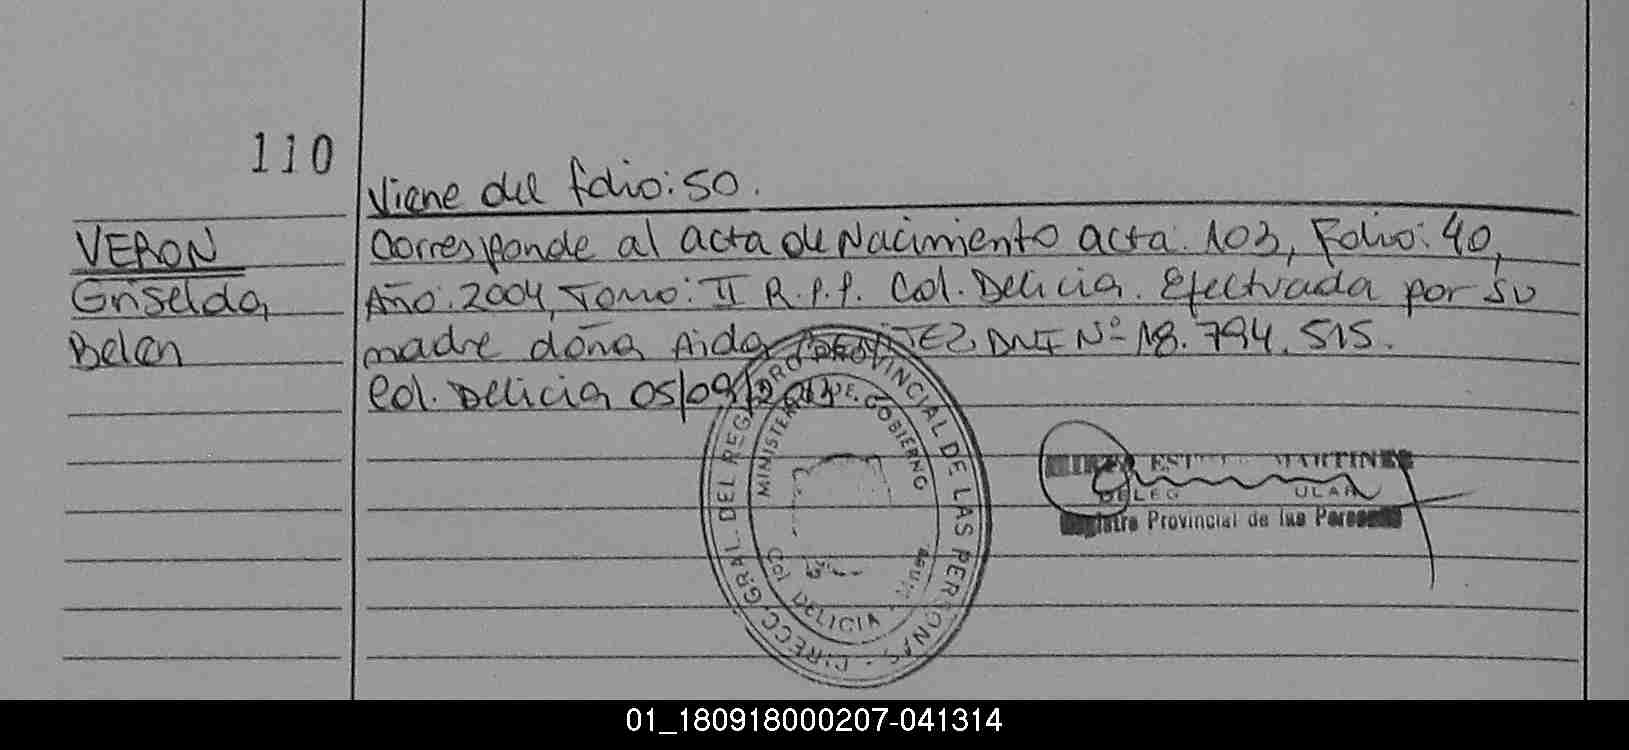 110
Viene del folio: 50.
VERON
Griselda
Belen
Corresponde al acta de Nacimiento acta: 103, Folio: 40,
Año: 2004, Tomo: II R.P.P. Col. Delicia. Efectuada por su
madre doña Aida DNI Nº 18.794.515.
Col. Delicia 05/09/
DIRECC. GRAL. DEL REG PROVINCIAL DE LAS PERSONAS
MINISTERIO DE GOBIERNO
Col DELICIA
MARTINEZ
Registro Provincial de las Personas
01_180918000207-041314